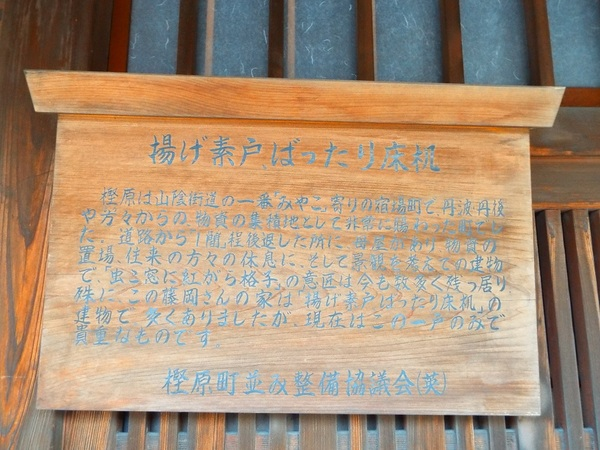 揚げ素戸、ばったり床机
樫原は山陰街道の一番「みやこ」寄りの宿場町で、丹波、丹後
や方々からの、物資の集積地として非常に賑わった町でし
た。道路から1間程後退した所に、母屋があり、物資の
置場、往来の方々の休息に、そして景観を考えての建物
で「虫こ窓に紅から格子」の意匠は今も数多く残っ居り
殊に、この藤岡さんの家は「揚げ素戸ばったり床机」の
建物で多くありましたが、現在はこの一戸のみで
貴重なものです。
樫原町並み整備協議会(英)